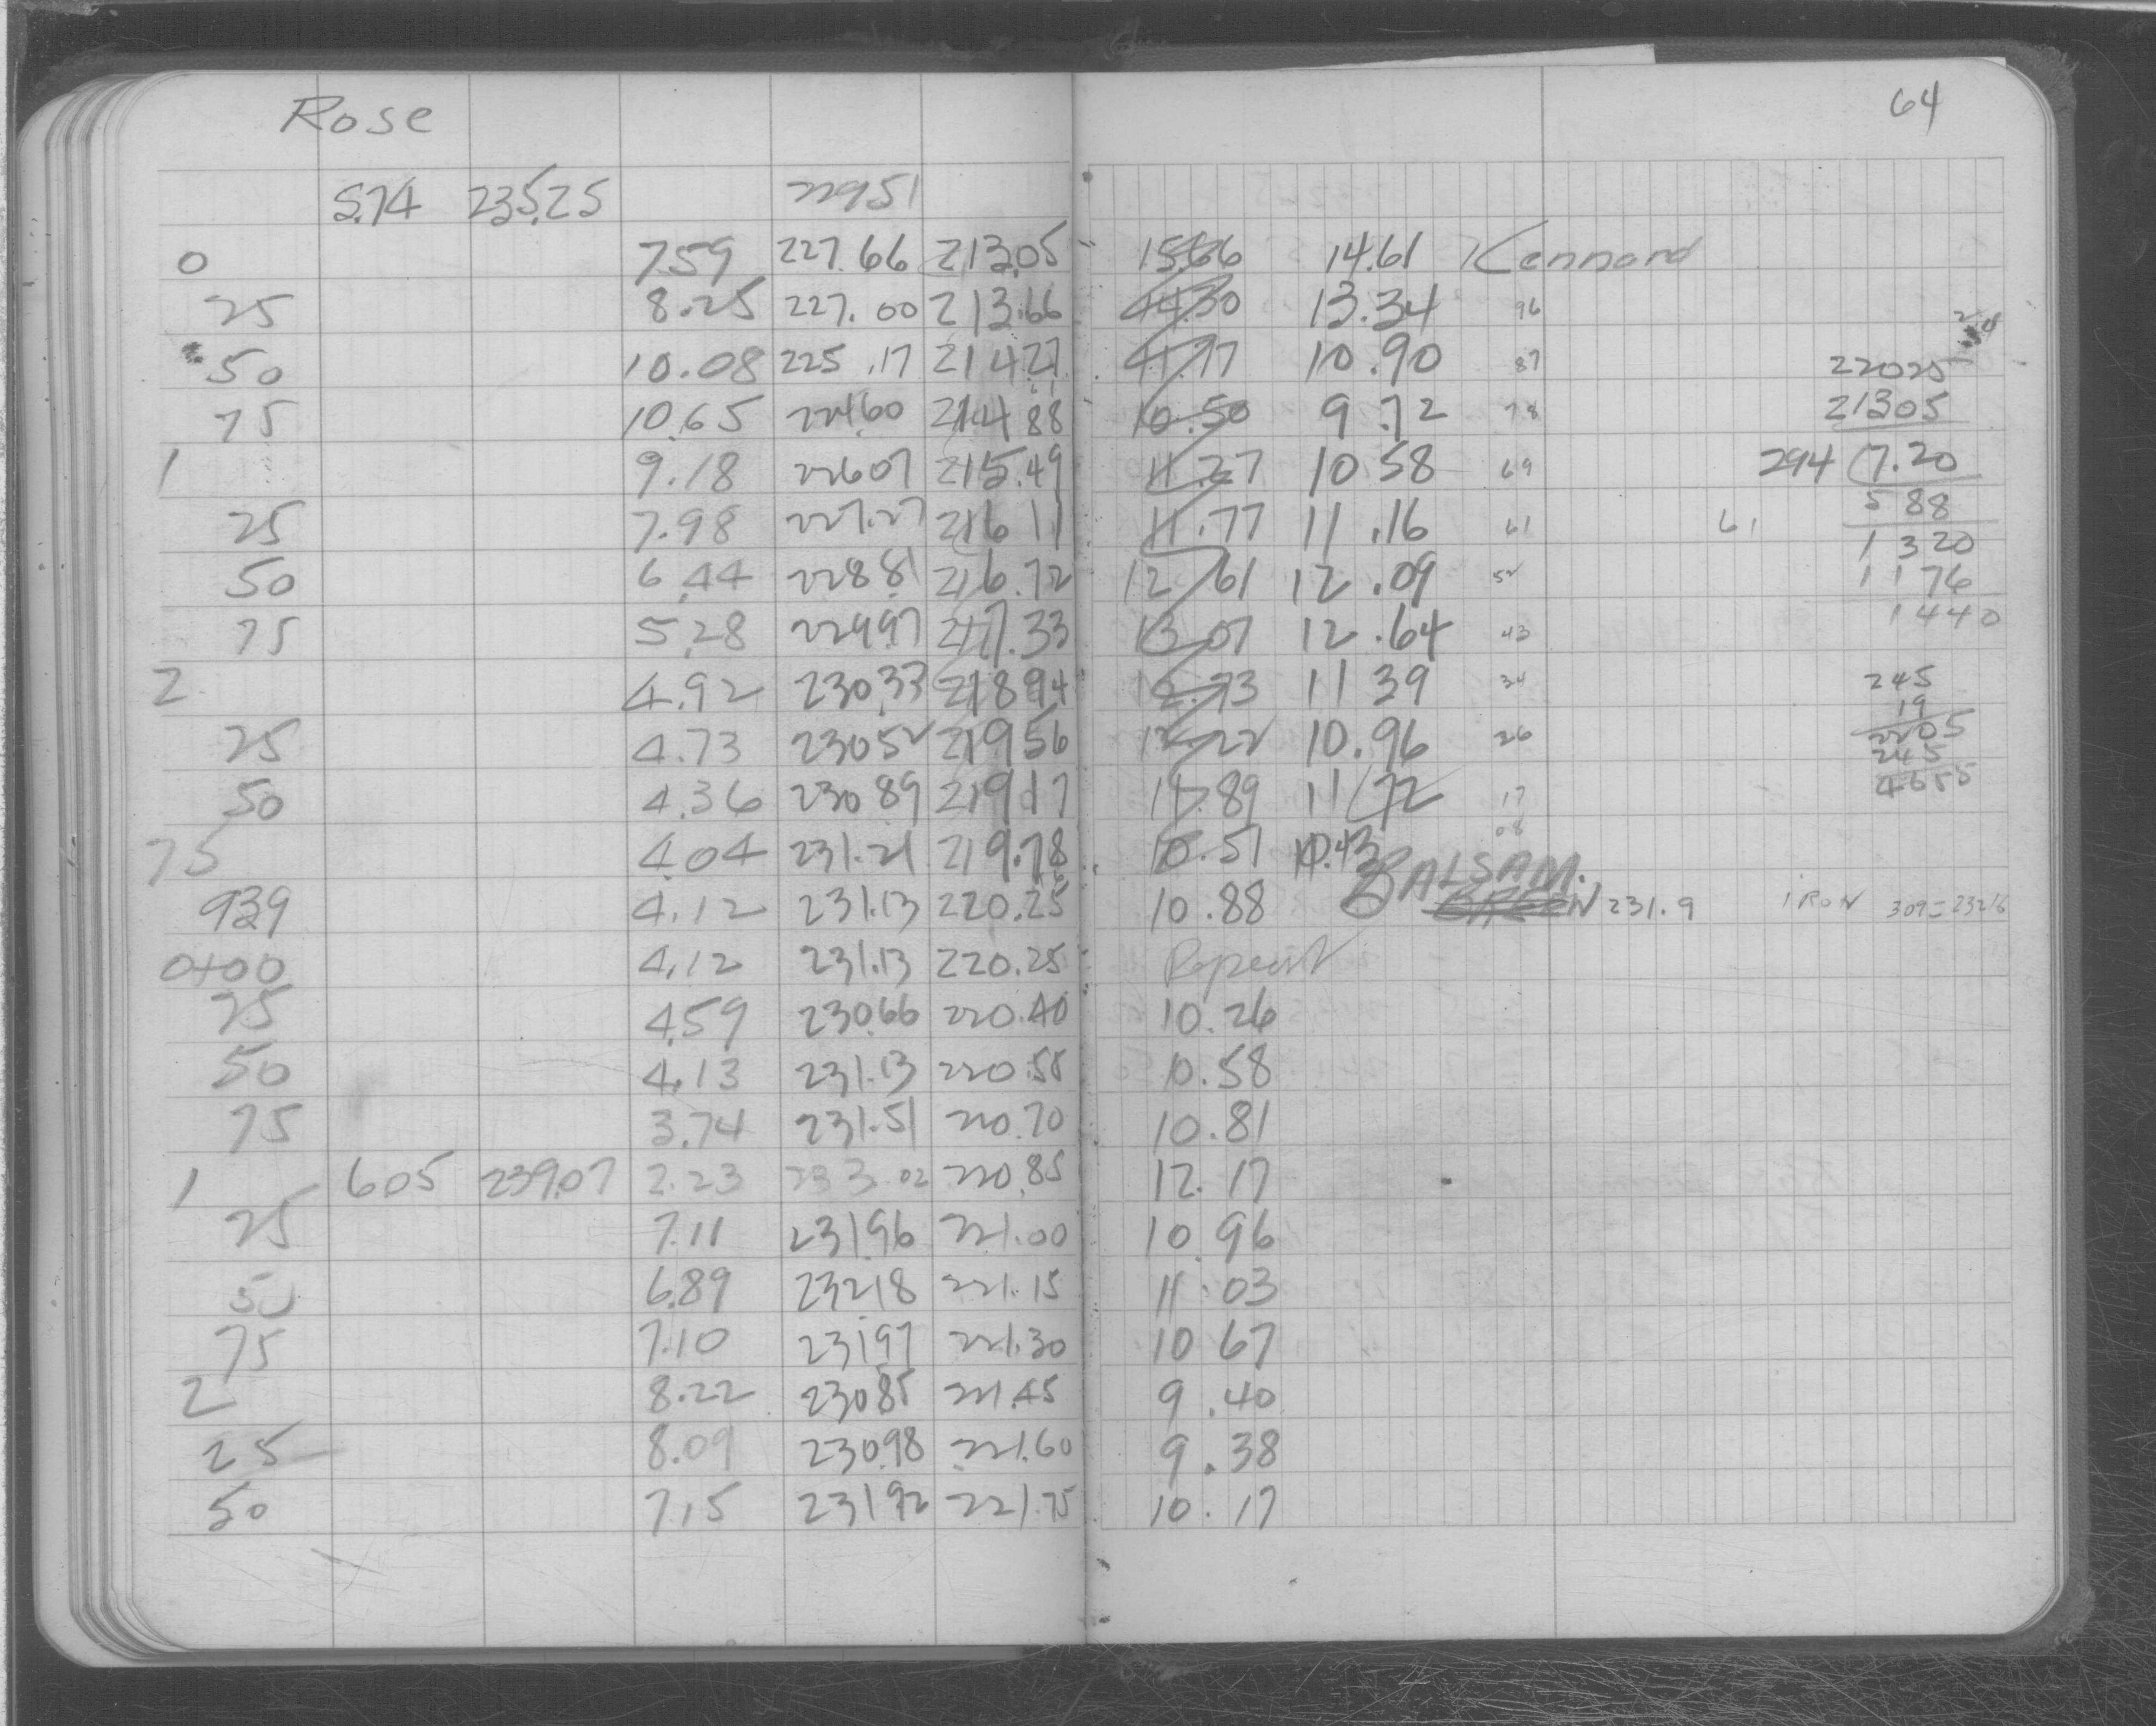 Rose
64
5.74 235.25 229 51
0 7.59 227.66 213.05 15.66 14.61 Kennard
25 8.25 227.00 213.66 14.30 13.34 96
50 10.08 225.17 214.27 11.77 10.90 87
75 10.65 224.60 214 88 10.50 9.72 78
1 9.18 226 07 215.49 11.27 10 58 69
25 7.98 227.27 216 11 11.77 11.16 61
50 6.44 228.81 216.72 12 61 12.09 52
75 5.28 229.97 217.33 13 07 12.64 43
2 4.92 230.33 218 94 12.73 11 39 34
25 4.73 230 52 219 56 12.22 10.96 26
50 4.36 230 89 219 17 11.89 11 72 17
75 4.04 231.21 219.78 10.51 10.43 08
BALSAM.
939 4.12 231.13 220.25 10.88 GREEN 231.9 IRON 309= 23216
0+00 4.12 231.13 220.25 Repeat
25 4.59 230.66 220.40 10.26
50 4.13 231.13 220.55 10.58
75 3.74 231.51 220.70 10.81
1 6.05 239.07 2.23 233.02 220.85 12.17
25 7.11 231.96 221.00 10.96
50 6.89 232.18 221.15 11.03
75 7.10 231 97 221.30 10 67
2 8.22 230.85 221.45 9.40
25 8.09 230.98 221.60 9.38
50 7.15 231 92 221.75 10.17
22025
21305
294 7.20
588
61 1320
1176
1440
245
19
2205
245
4655